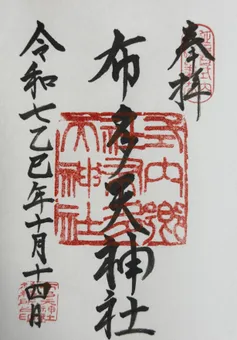 奉拝
布多天神社
令和七乙巳年十月十四日